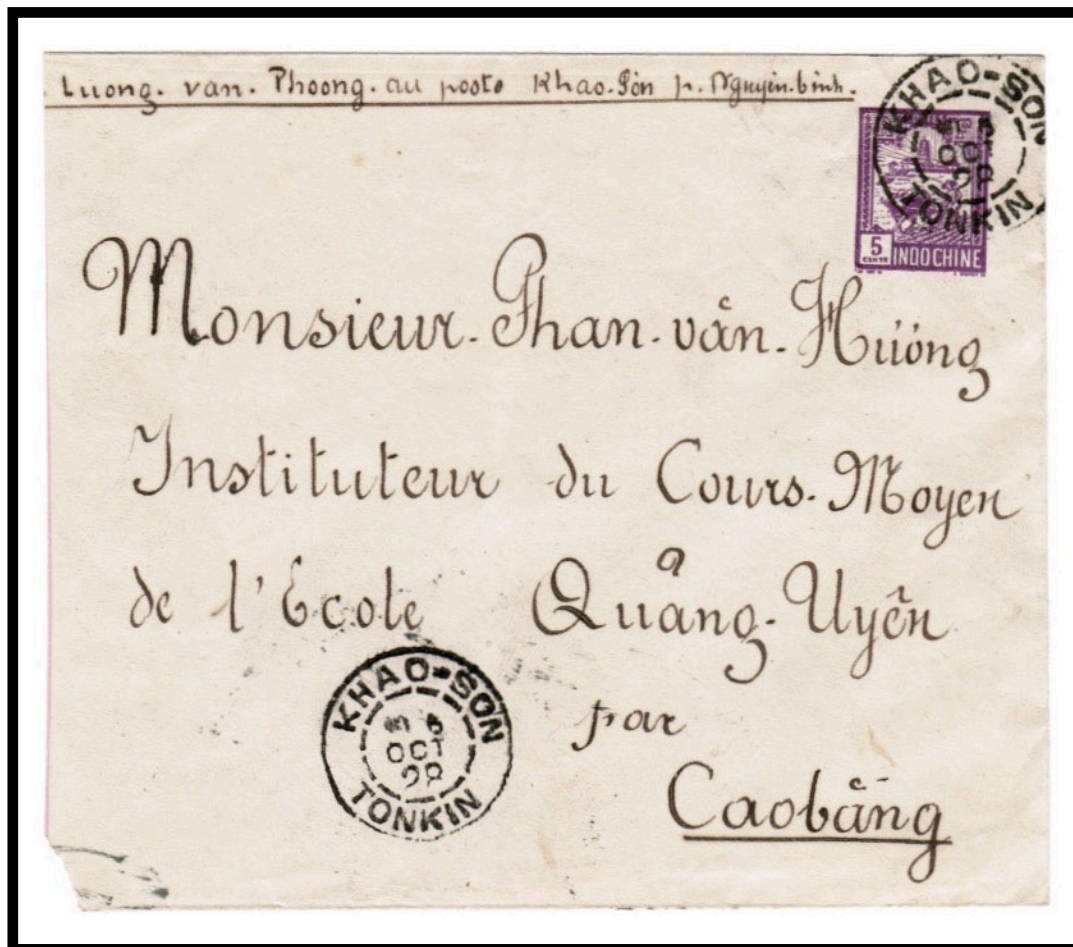 Luong. van. Phoong. au poste Khao-Sơn p. Nguyên-binh.
KHAO-SON
OCT
28
TONKIN
5
CENTS
INDOCHINE
Monsieur. Phan. văn. Hương
Instituteur du Cours. Moyen
de l'Ecole Quảng-Uyên
par
Caobằng
KHAO-SON
OCT
28
TONKIN